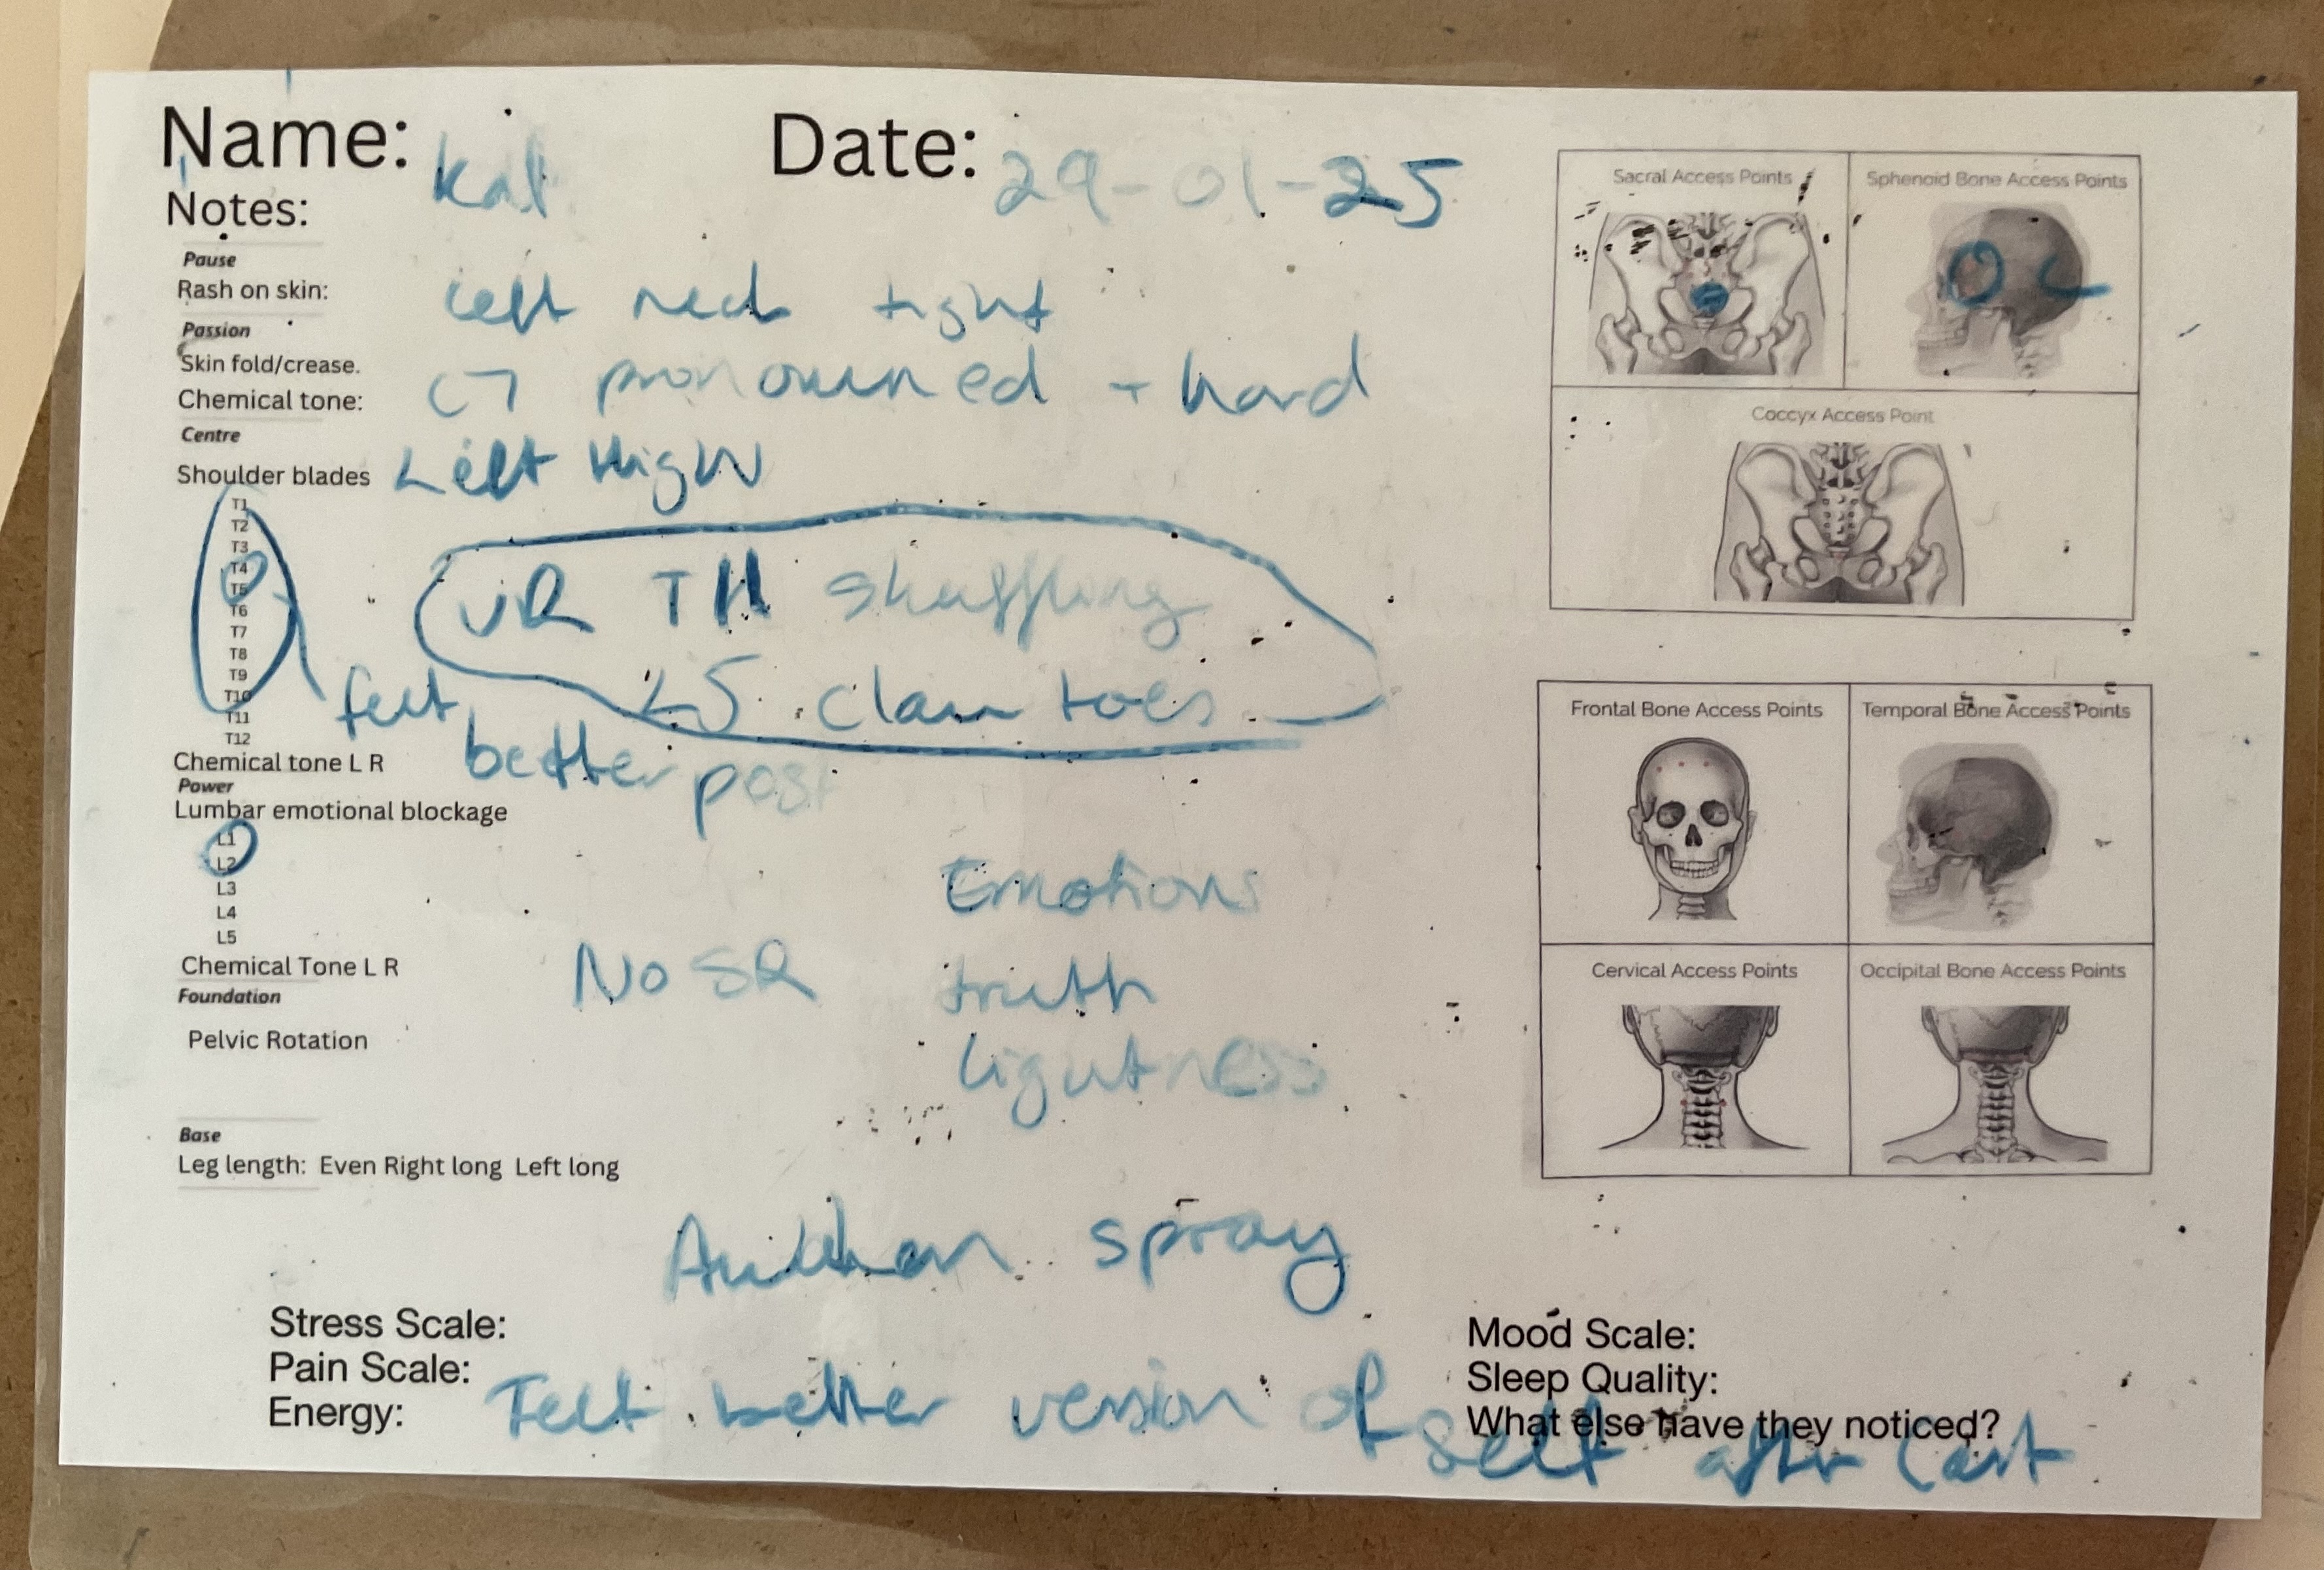 Name: Kat
Date: 29-01-25
Notes:
Pause
Rash on skin: Left neck tight
Passion
Skin fold/crease.
Chemical tone: C7 pronounced + hard
Centre
Shoulder blades Left High
T1
T2
T3
T4
T5
T6
T7
T8
T9
T10
T11
T12
UR T11 shuffling
L5 claw toes
felt
better post
Chemical tone L R
Power
Lumbar emotional blockage
L1
L2
L3
L4
L5
Emotions
Chemical Tone L R
No SR truth
Foundation
Pelvic Rotation
Lightness
Base
Leg length: Even Right long Left long
spray
Stress Scale:
Pain Scale:
Energy: Felt better version of
self after last
Mood Scale:
Sleep Quality:
What else have they noticed?
Sacral Access Points
Sphenoid Bone Access Points
L
Coccyx Access Point
Frontal Bone Access Points
Temporal Bone Access Points
Cervical Access Points
Occipital Bone Access Points